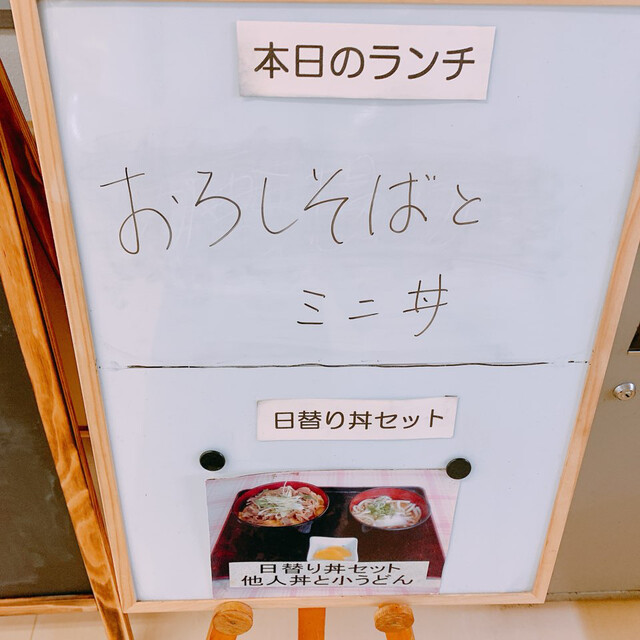 本日のランチ
おろしそばと
ミニ丼
日替り丼セット
日替り丼セット
他人丼と小うどん